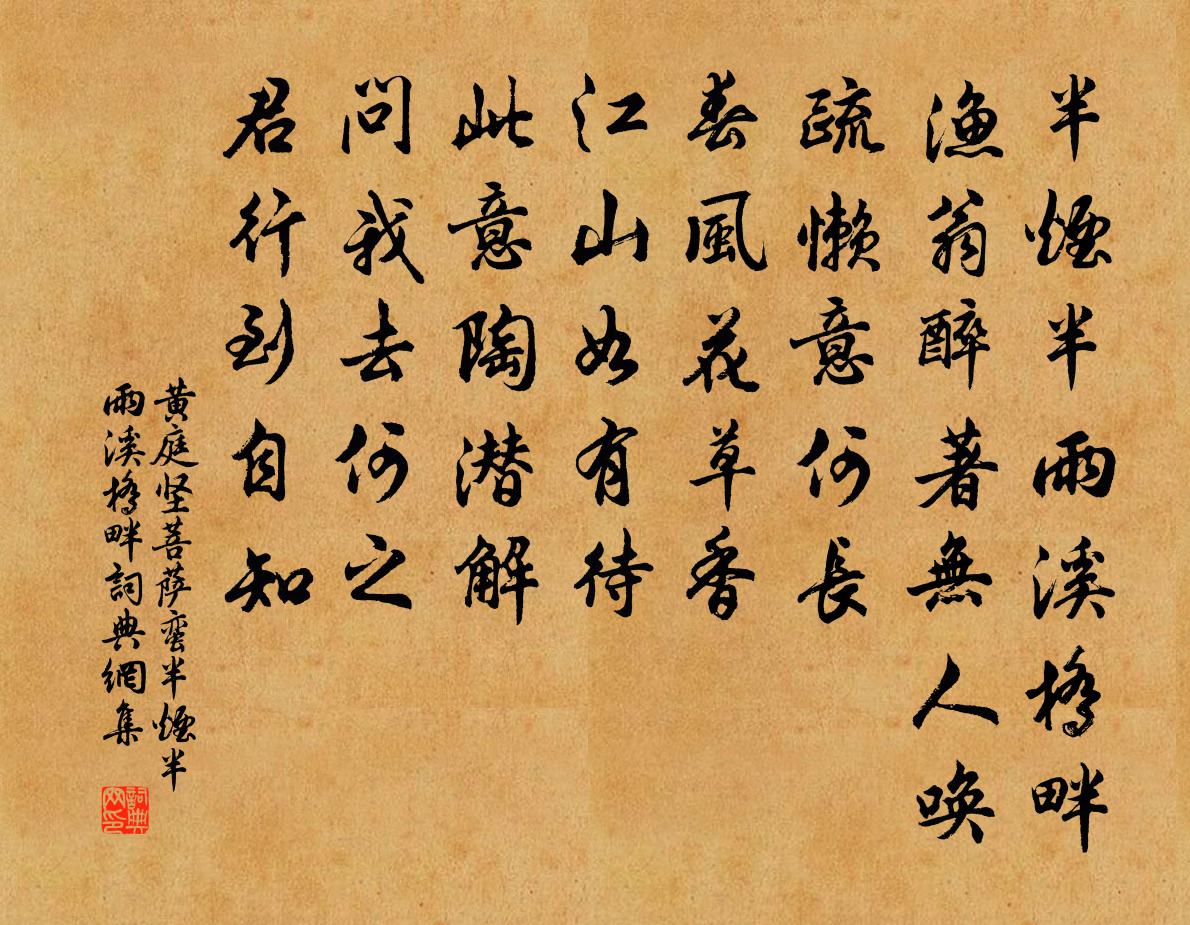 半煙半雨溪橋畔
漁翁醉著無人喚
疏懶意何長
春風花草香
江山如有待
此意陶潜解
問我去何之
君行到自知
黄庭坚菩萨蛮半煙半
雨溪橋畔詞典網集
詞典
网印